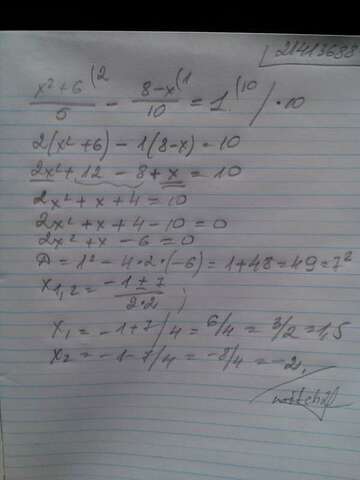 21413688
x²+6 (2 / 5 - 8-x (1 / 10 = 1 (10 / ·10
2(x²+6) - 1(8-x) = 10
2x² + 12 - 8 + x = 10
2x² + x + 4 = 10
2x² + x + 4 - 10 = 0
2x² + x - 6 = 0
D = 1² - 4·2·(-6) = 1+48 = 49 = 7²
x₁,₂ = -1 ± 7 / 2·2 ;
x₁ = -1+7/4 = 6/4 = 3/2 = 1,5
x₂ = -1-7/4 = -8/4 = -2.